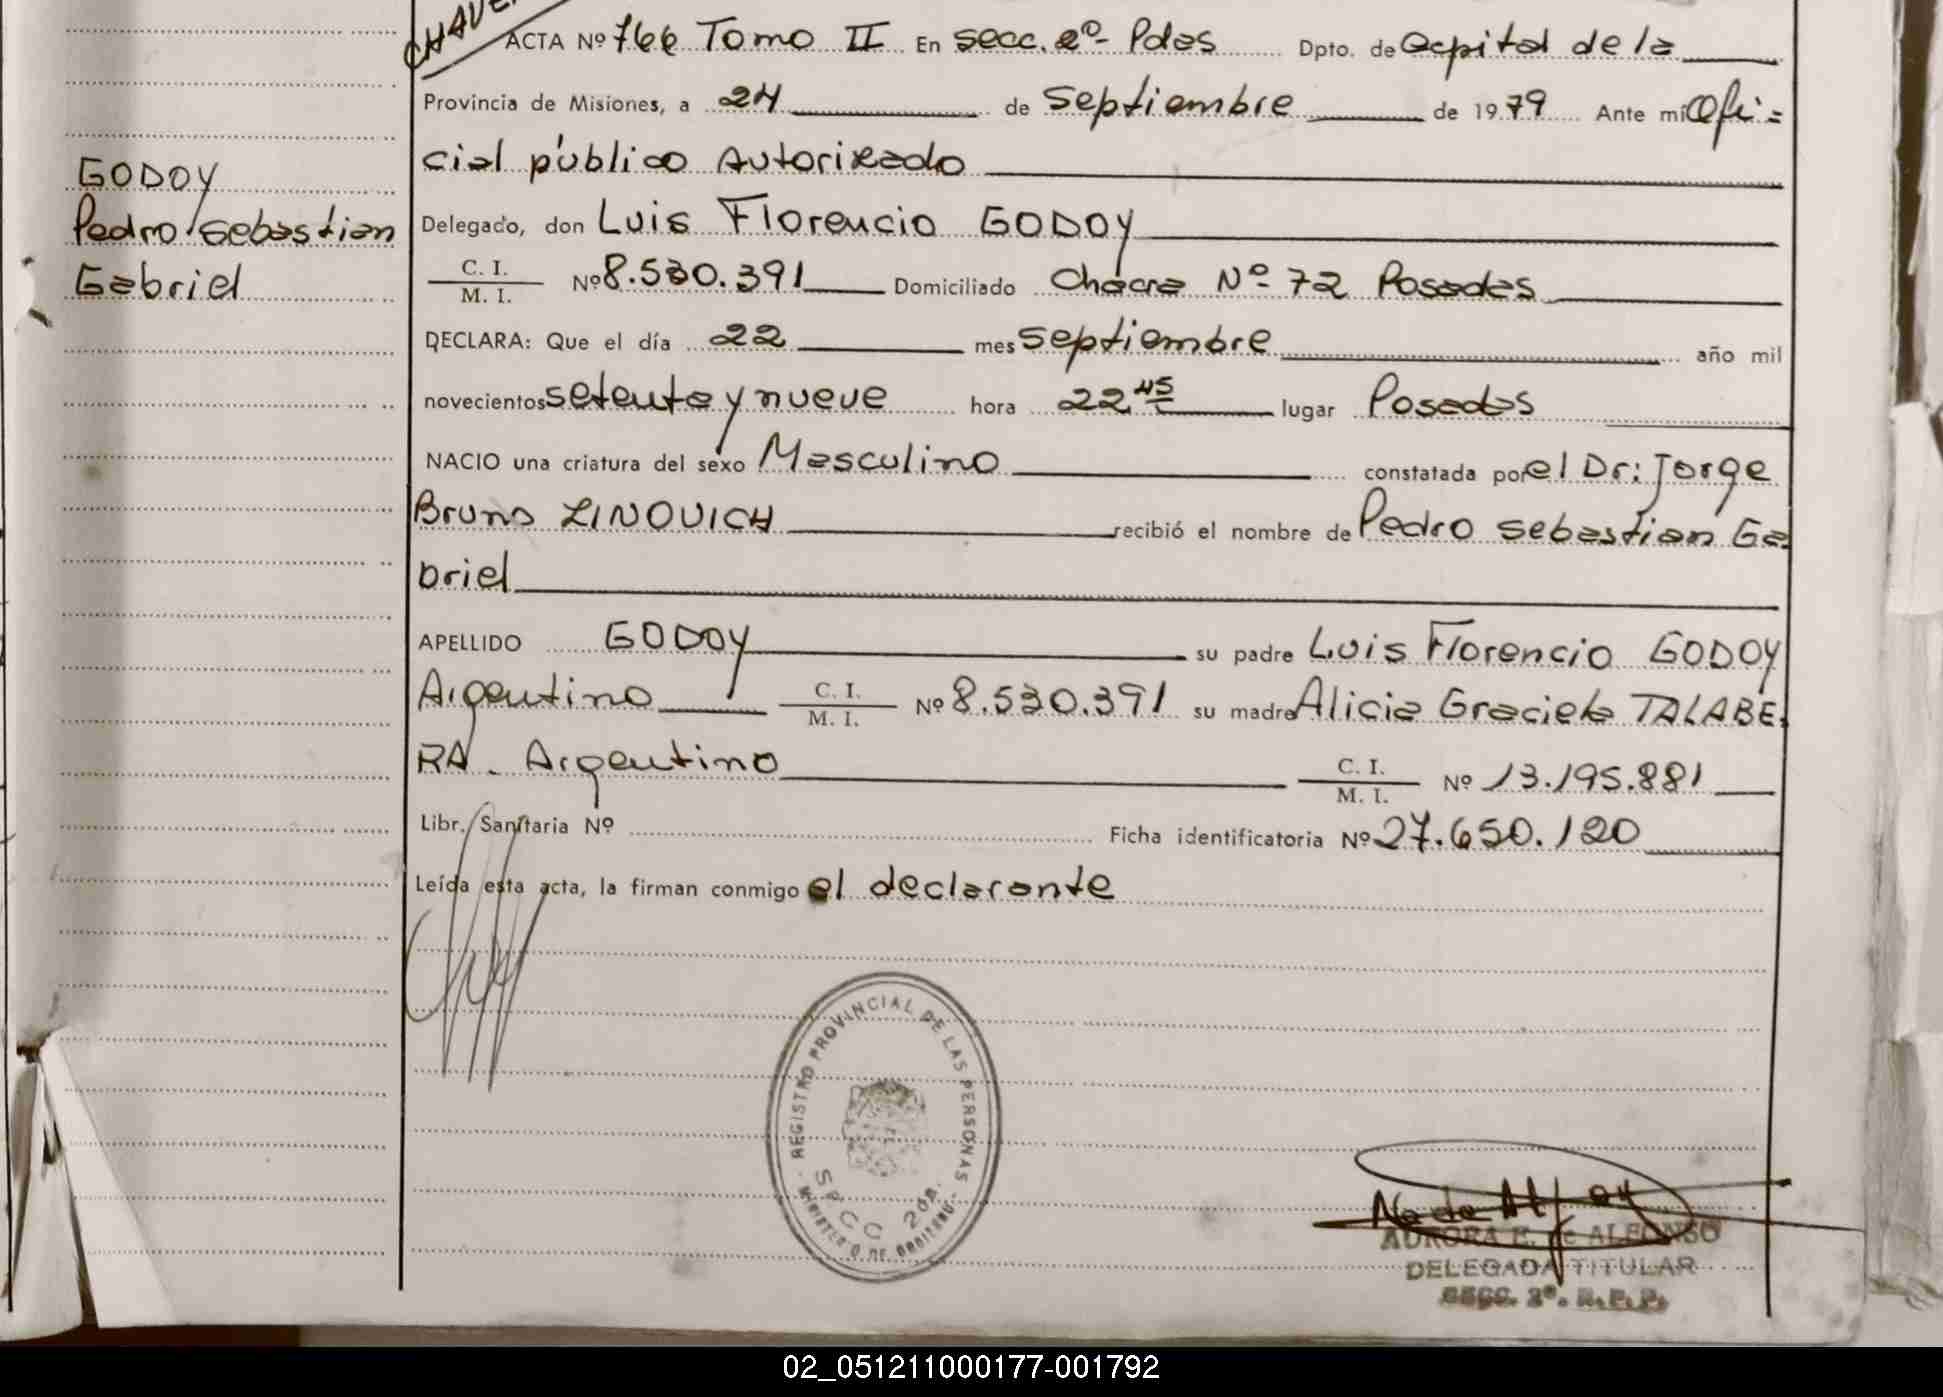 ACTA Nº 766 Tomo II En secc. 2º- Pdas Dpto. de Capital de la
Provincia de Misiones, a 24 de Septiembre de 1979 Ante mí Ofi-
cial público Autorizado
GODOY
Pedro Sebastian
Gabriel
Delegado, don Luis Florencio GODOY
C. I.
M. I. Nº 8.530.391 Domiciliado Chacra Nº- 72 Posadas
DECLARA: Que el día 22 mes septiembre año mil
novecientos setenta y nueve hora 22,45 lugar Posadas
NACIO una criatura del sexo Masculino constatada por el Dr: Jorge
Bruno ZINOVICH recibió el nombre de Pedro Sebastian Ga
briel
APELLIDO GODOY su padre Luis Florencio GODOY
Argentino C. I.
M. I. Nº 8.530.391 su madre Alicia Graciela TALABE.
RA. Argentino C. I.
M. I. Nº 13.195.881
Libr. Sanitaria Nº Ficha identificatoria Nº 27.650.120
Leída esta acta, la firman conmigo el declarante
REGISTRO PROVINCIAL DE LAS PERSONAS
SECC 2da.
AURORA E. de ALFONSO
DELEGADA TITULAR
SECC. 2º. R.P.P.
02_051211000177-001792